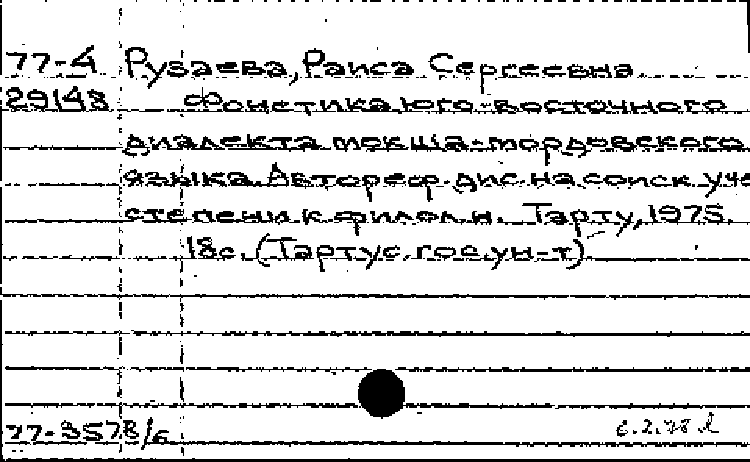 77-4 Рузаева, Раиса Сергеевна.
29148 Фонетика юго-восточного
диалекта мокша-мордовского
языка. Автореф. дис. на соиск. уче
степени к. филол. н. Тарту, 1975.
18с. (Тартус. гос. ун-т)
77-3578/6
6.2.78